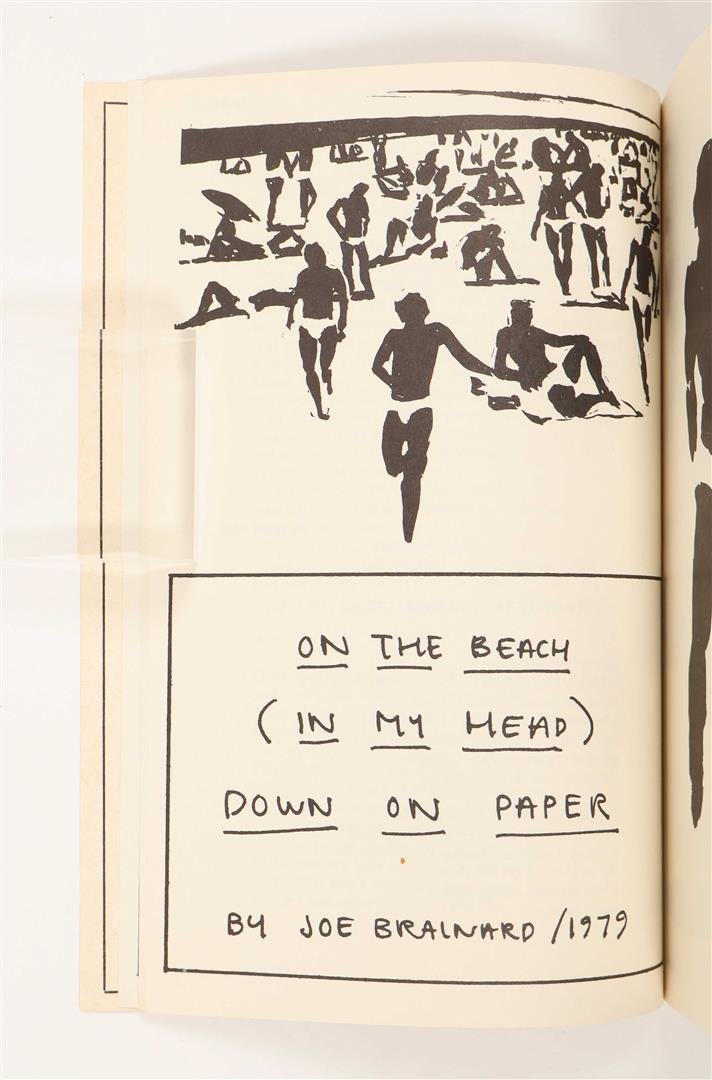 ON THE BEACH
(IN MY HEAD)
DOWN ON PAPER
BY JOE BRAINARD /1979